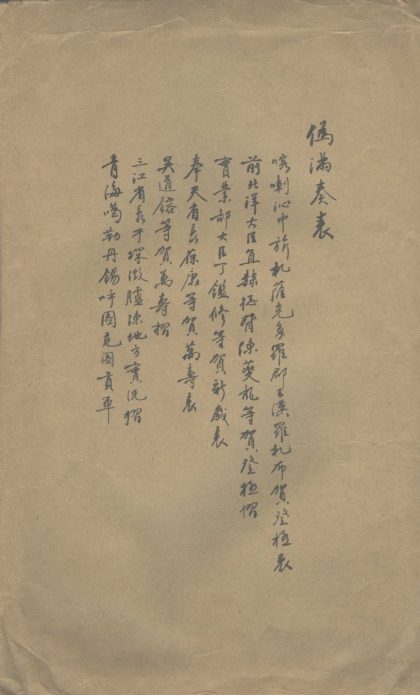 伪满奏表
喀喇沁中旂札薩克多羅郡王漢羅札布賀登極表
前北洋大臣直隸總督陳夔龍等賀登極摺
實業部大臣丁鑑修等賀新歲表
奉天省長葆康等賀萬壽表
吳道鎔等賀萬壽摺
三江省長于琛澂臚陳地方實況摺
青海噶勒丹錫呼圖克圖貢單